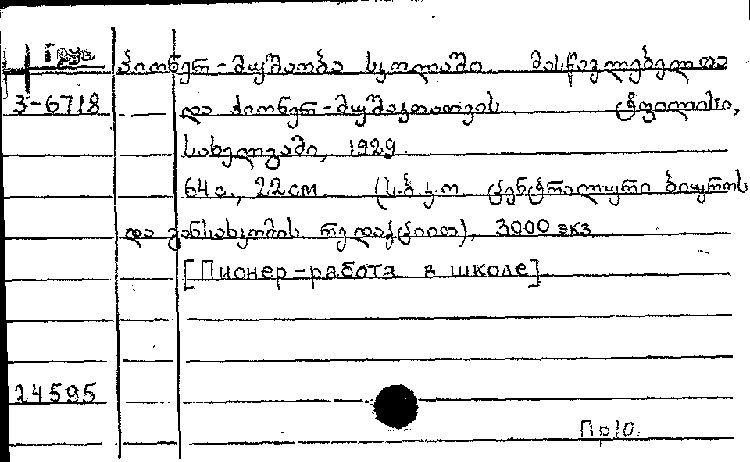 Груз
პიონერ-მუშაობა სკოლაში. მასწავლებელთა
3-6718 და პიონერ-მუშაკთათვის. ტფილისი,
სახელგამი, 1929.
64 გ., 22 см. (ს.ბ.კ.ო. ცენტრალური ბიუროს
და განსახკომის რედაქციით), 3000 экз
[Пионер-работа в школе]
24595
Пр10.